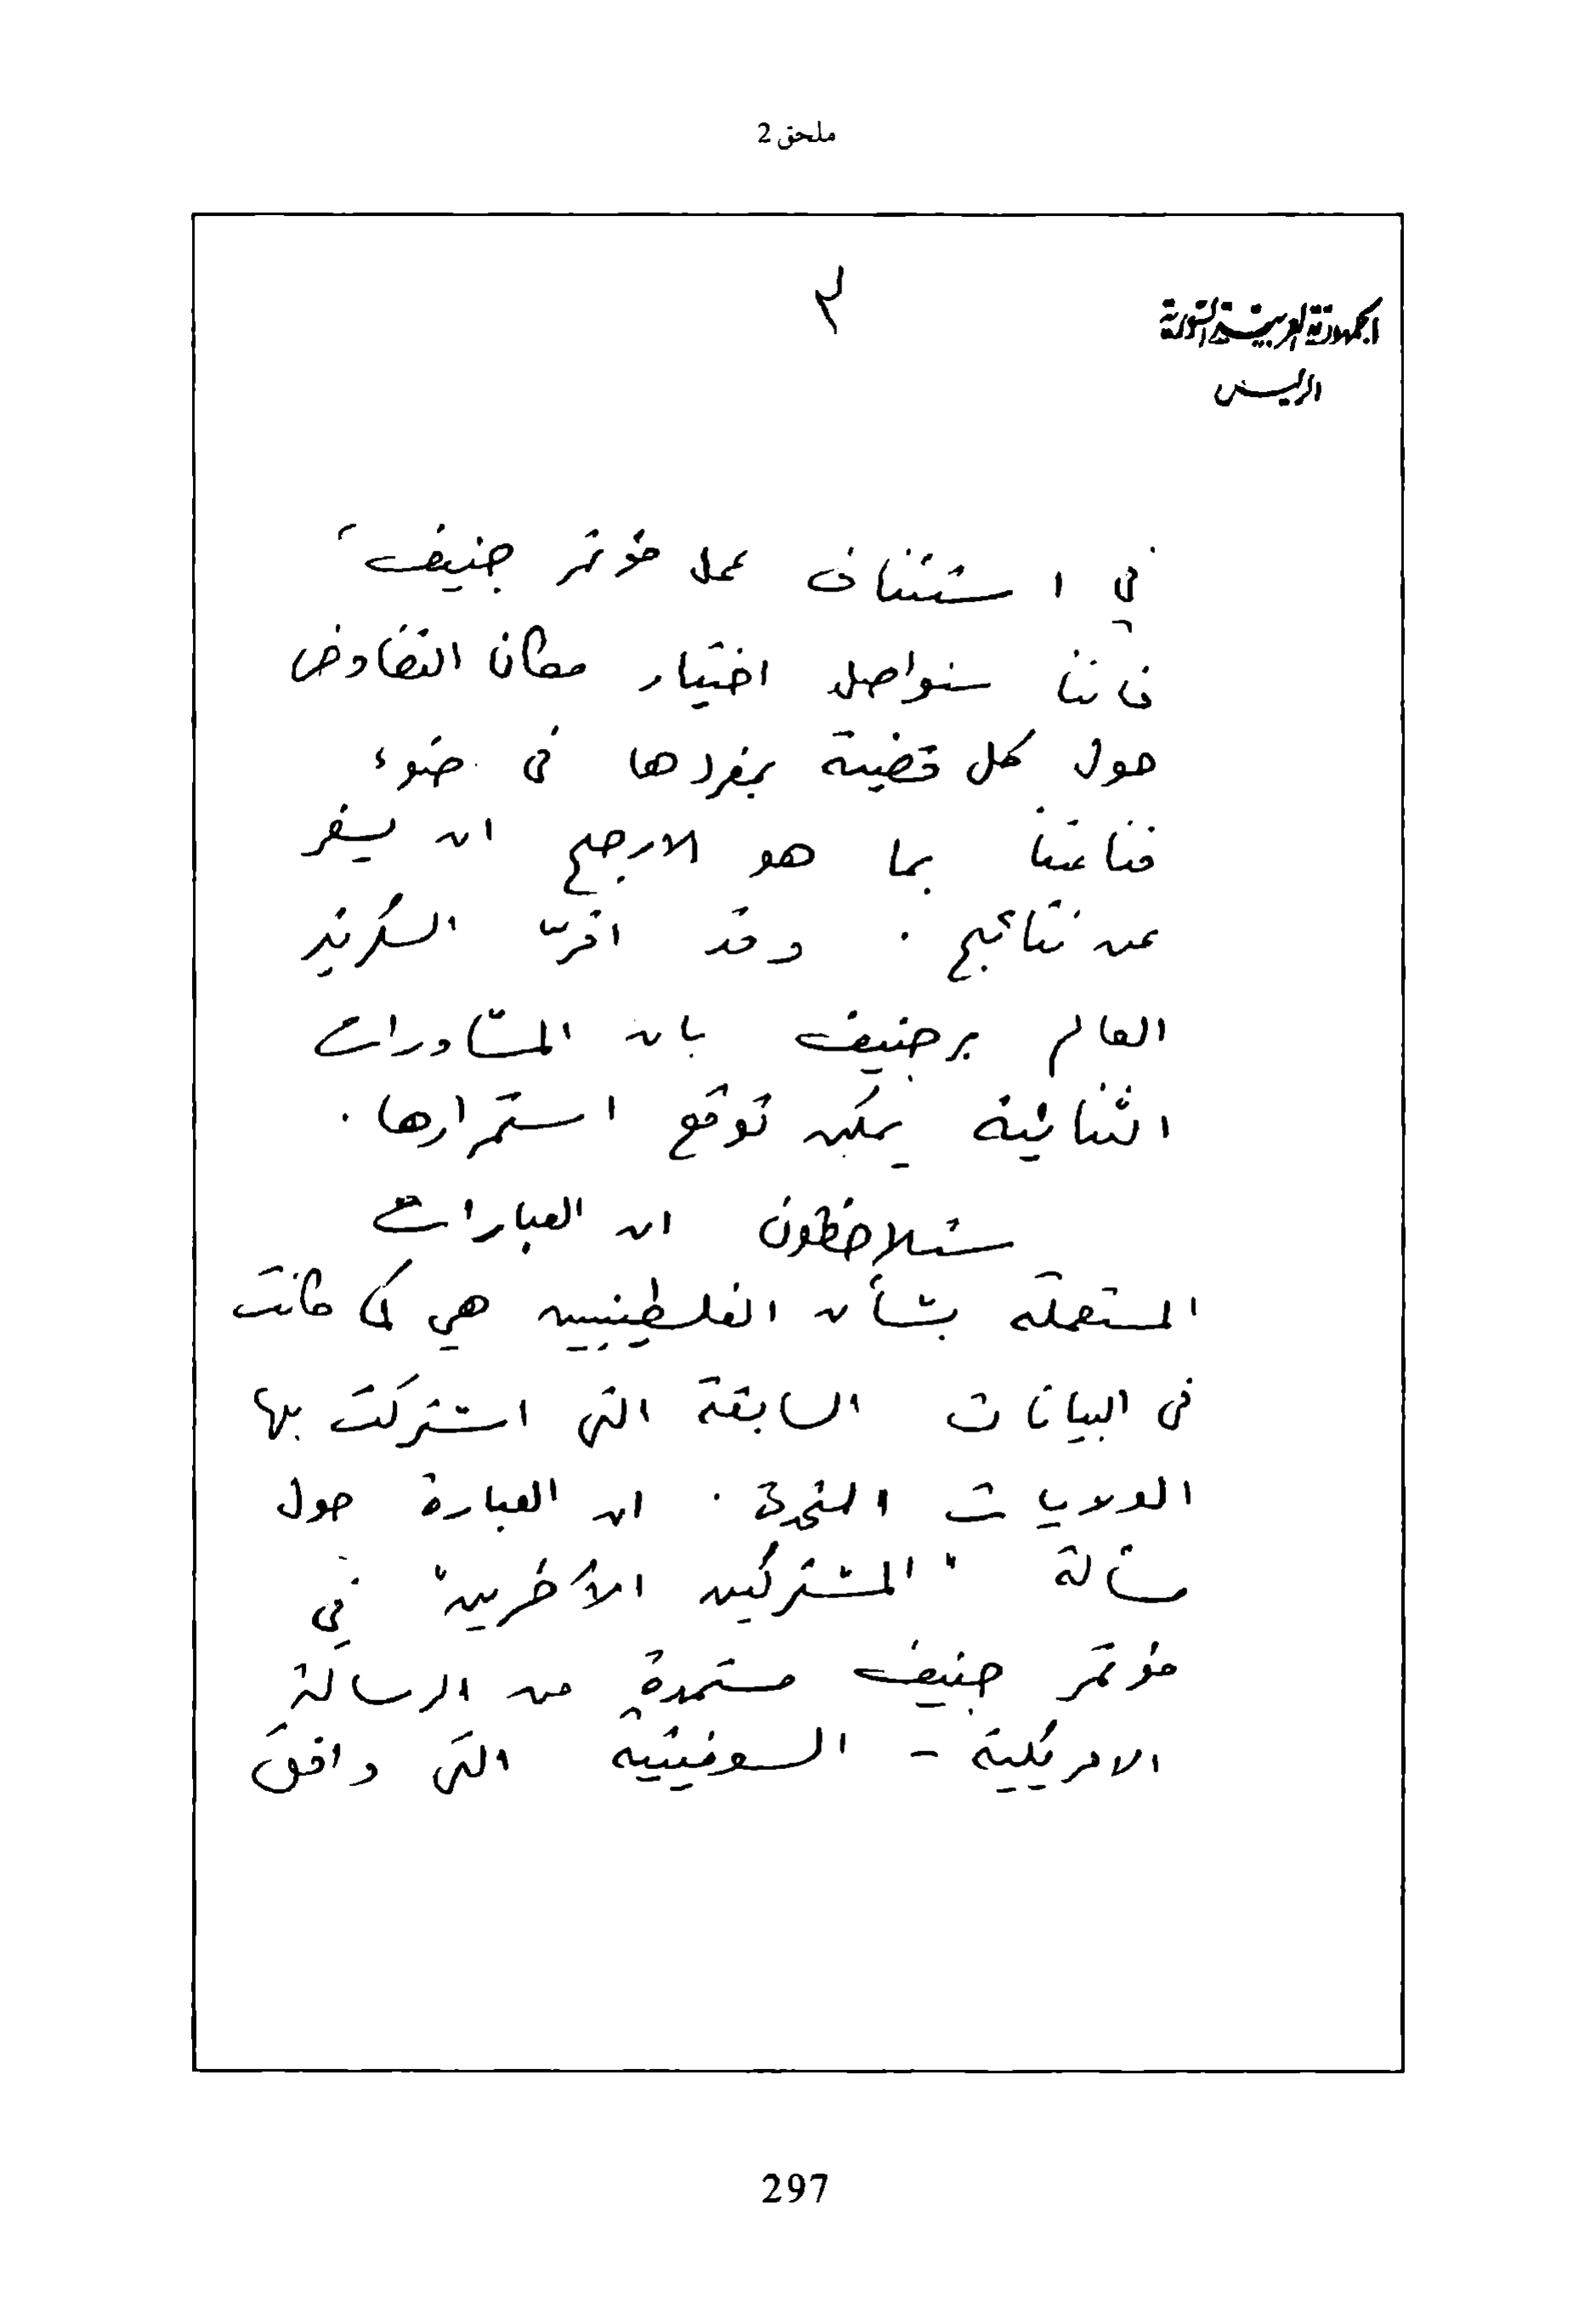 ملحق 2
الجمهورية العربية السورية
٣
الرئيس
في استئناف عمل مؤتمر جنيف،
فاننا سنواصل اختيار مكان التفاوض
حول كل قضية بمفردها في ضوء
قناعتنا بما هو الارجح ان يسفر
عن نتائج . وقد اقرّ السكرتير
العام برجنيف بان المشاورات
الثنائية يمكن توقع استمرارها .
ستلاحظون ان العبارات
المستعملة بشأن الفلسطينيين هي كما كانت
في البيانات السابقة التي اشتركت بها
الولايات المتحدة . ان العبارة حول
مسألة " المشتركين الآخرين " في
مؤتمر جنيف مستمدة من الرسالة
الامريكية - السوفيتية التي وافق
297